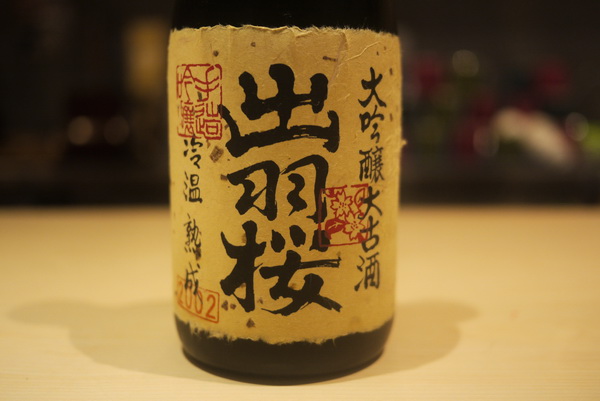 大吟醸大古酒
出羽桜
手造
吟醸
冷温熟成
2002